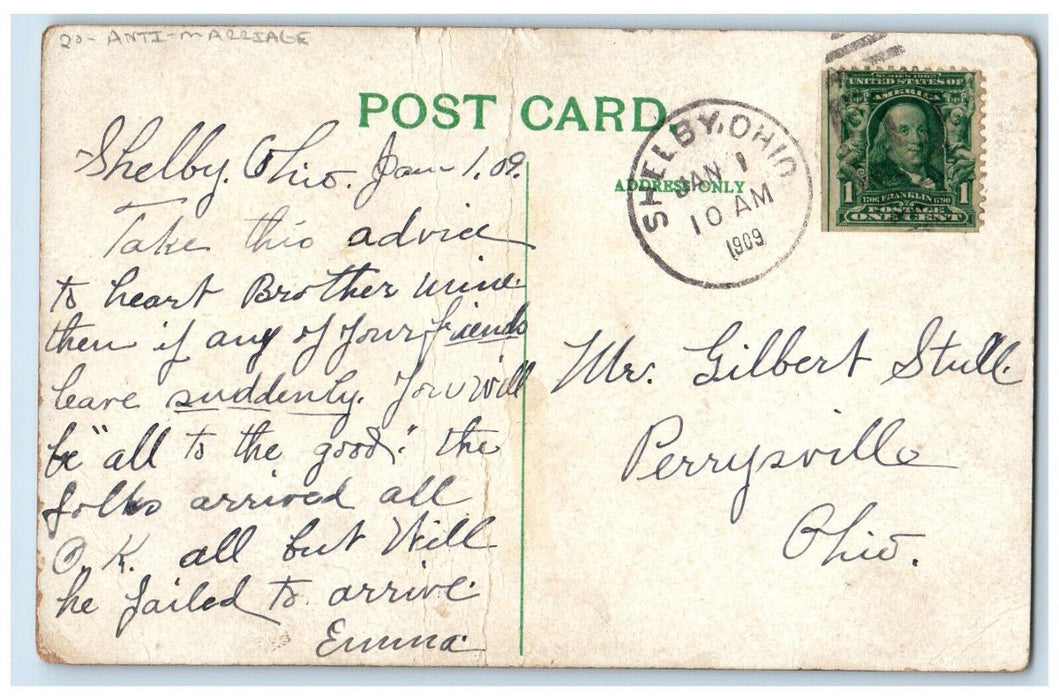 20- ANTI-MARRIAGE
POST CARD
ADDRESS ONLY
SHELBY, OHIO
JAN 1
10 AM
1909
SERIES 1902
UNITED STATES OF
AMERICA
1 1
1706 FRANKLIN 1790
POSTAGE
ONE CENT
Shelby, Ohio. Jan 1, 09.
Take this advice
to heart Brother mine.
then if any of your friends
leave suddenly. You will
be "all to the good". the
folks arrived all
O.K. all but Will
he failed to arrive.
Emma
Mr. Gilbert Stull.
Perrysville
Ohio.